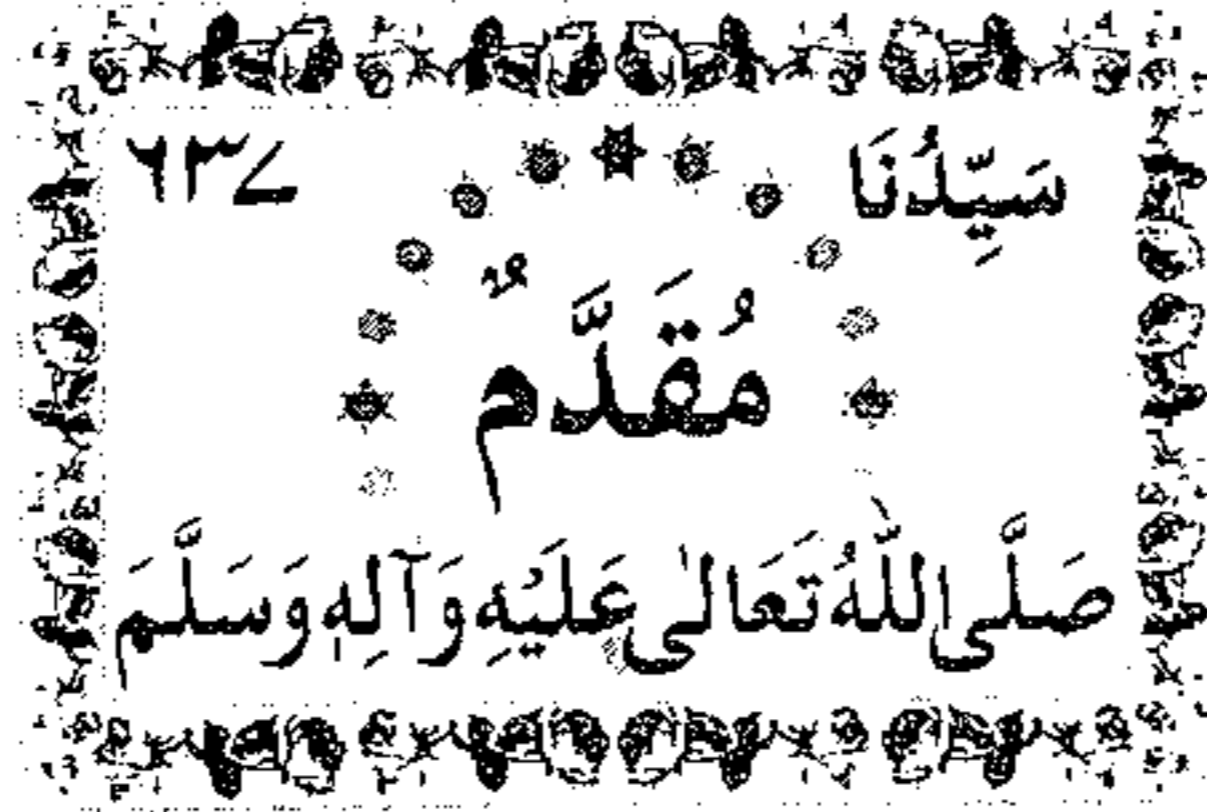 سَيِّدُنَا ٦٣٧
مُقَدَّمٌ
صَلَّى اللّٰهُ تَعَالىٰ عَلَيْهِ وَآلِهٖ وَسَلَّمَ